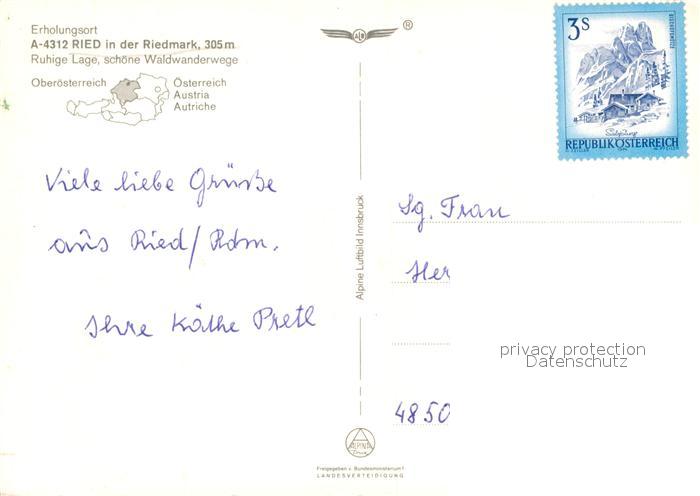 Erholungsort
A-4312 RIED in der Riedmark, 305 m
Ruhige Lage, schöne Waldwanderwege
Oberösterreich
Österreich
Austria
Autriche
Viele liebe Grüße
aus Ried/Rdm.
Ihre Käthe Pretl
Alpine Luftbild Innsbruck
ALPINA
Druck
Freigegeben v. Bundesministerium f.
LANDESVERTEIDIGUNG
®
3 S
BISCHOFSMÜTZE
Salzburg
REPUBLIK ÖSTERREICH
Sg. Frau
Her
privacy protection
Datenschutz
4850